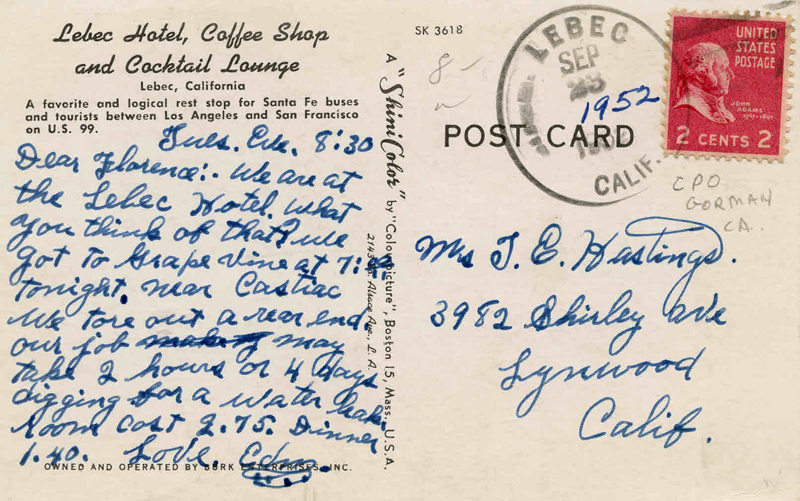 Lebec Hotel, Coffee Shop
and Cocktail Lounge
Lebec, California
A favorite and logical rest stop for Santa Fe buses
and tourists between Los Angeles and San Francisco
on U.S. 99.
Tues. Eve. 8:30
Dear Florence:. We are at
the Lebec Hotel. What
you think of that? We
got to Grape Vine at 7:
tonight. near Castiac
We tore out a rear end.
our job may
take 2 hours or 4 days
digging for a water leak.
Room cost 2.75. Dinner
1.40. Love.
OWNED AND OPERATED BY BURK ENTERPRISES, INC.
A "ShiniColor" by "Colourpicture", Boston 15, Mass., U.S.A.
L. A.
SK 3618
8-
POST CARD
LEBEC
SEP
23
1952
CALIF.
UNITED
STATES
POSTAGE
JOHN
ADAMS
2 CENTS 2
CPO
GORMAN
CA.
Mrs T. E. Hastings.
3982 Shirley ave
Lynwood
Calif.